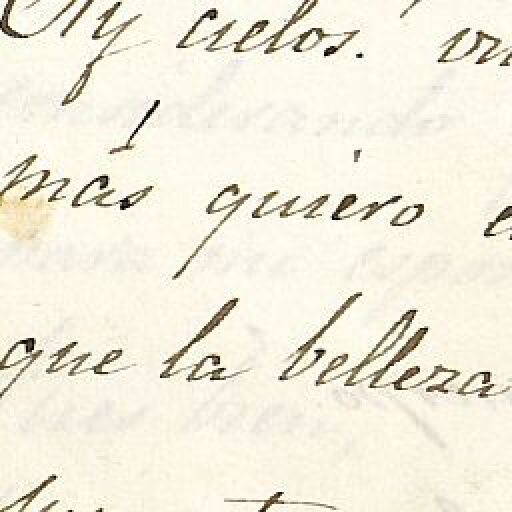 Ay cielos!
más quiero
que la belleza